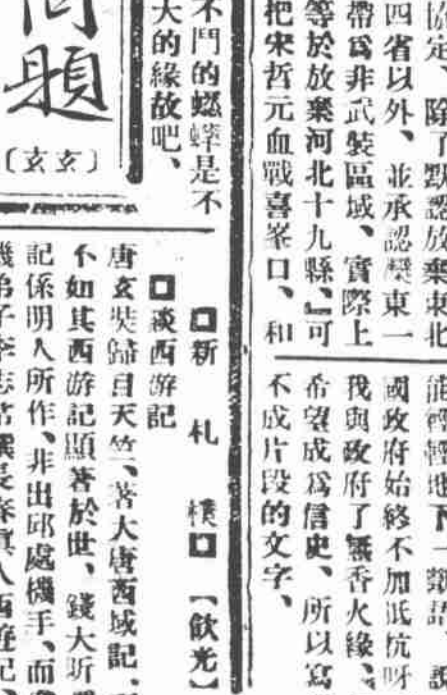 協定、除了默認放棄東北
四省以外、並承認欒東一
帶爲非武裝區域、實際上
等於放棄河北十九縣、』可
把宋哲元血戰喜峯口、和
不鬥的蟋蟀是不
大的緣故吧、
問題
〔玄玄〕
能輕輕地下一類語
國政府始終不加抵抗呀
我與政府了無香火緣、
希望成爲信史、所以寫
不成片段的文字、
□新札樸□【飲光】
□談西游記
唐玄奘歸自天竺、著大唐西域記、
不如其西游記顯著於世、錢大昕
記係明人所作、非出邱處機手、而
機弟子李志常撰長春眞人西遊記、